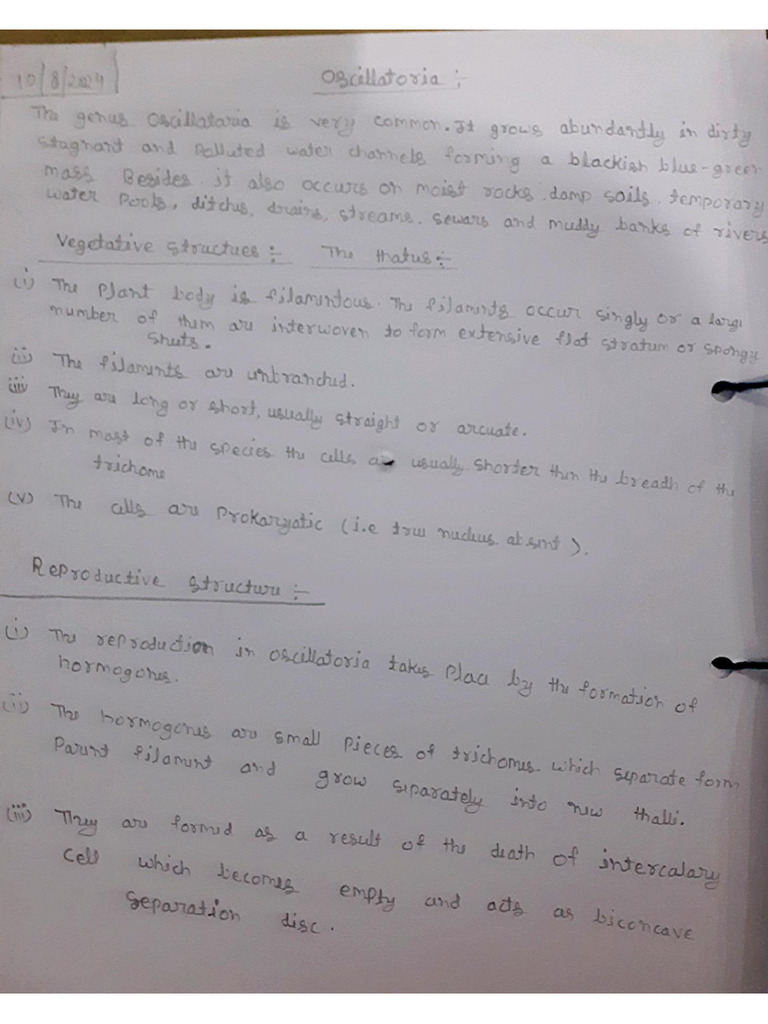 10/8/2024
Oscillatoria :-
The genus Oscillataria is very common. It grows abundantly in dirty
stagnant and polluted water channels forming a blackish blue-green
mass Besides it also occurs on moist rocks, damp soils, temporary
water pools, ditches, drains, streams, sewars and muddy banks of rivers
Vegetative structues :- The thatus :-
(i) The Plant body is filamentous. The filaments occur singly or a large
number of them are interwoven to form extensive flat stratum or spongy
sheets.
(ii) The filaments are unbranched.
(iii) They are long or short, usually straight or arcuate.
(iv) In most of the species the cells are usually shorter than the breadth of the
trichome
(v) The cells are Prokaryatic (i.e true nucleus absent).
Reproductive structure :-
(i) The reproduction in oscillatoria takes place by the formation of
hormogones.
(ii) The hormogones are small pieces of trichomes which separate form
Parent filament and grow separately into new thalli.
(iii) They are formed as a result of the death of intercalary
cell which becomes empty and acts as biconcave
separation disc.